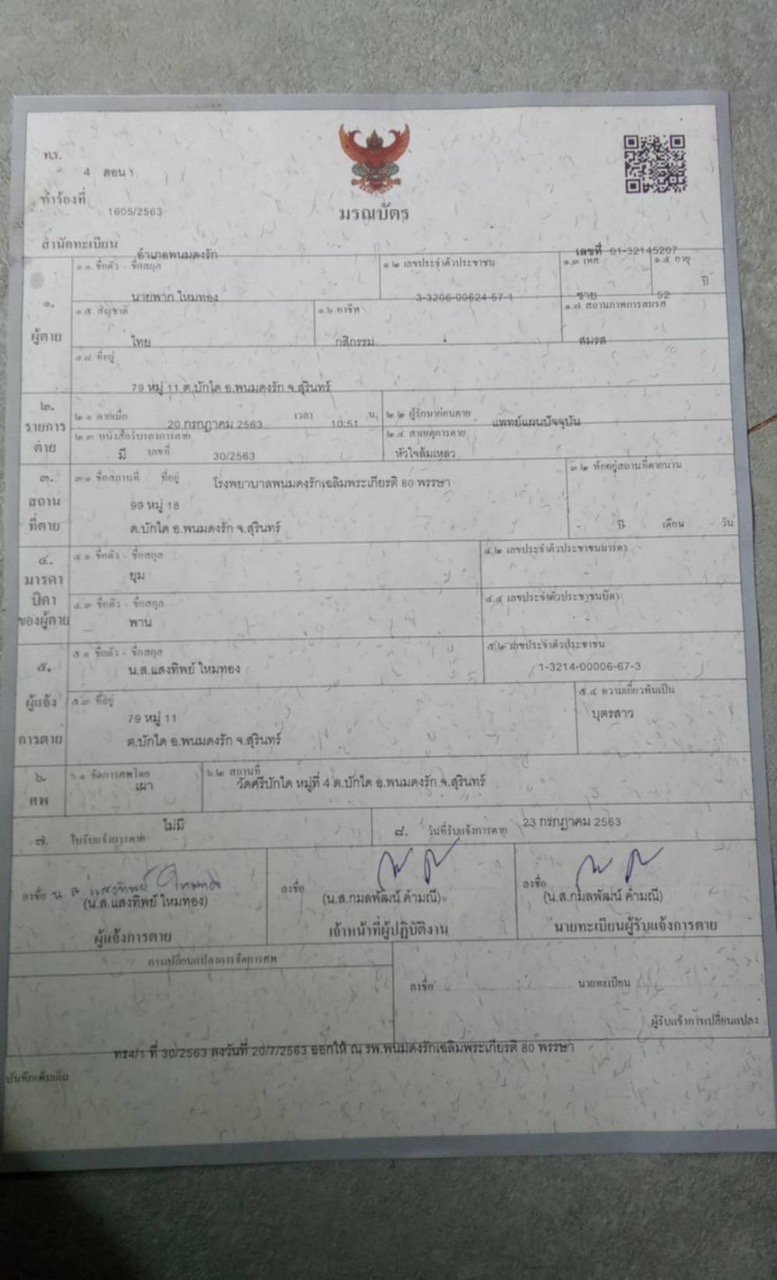 ท.ร.
4 ตอน 1
คำร้องที่ 1605/2563
มรณบัตร
สำนักทะเบียน อำเภอพนมดงรัก
เลขที่ 01-32145207
๑. ผู้ตาย
๑.๑ ชื่อตัว - ชื่อสกุล นายพาก ใหมทอง
๑.๒ เลขประจำตัวประชาชน 3-3206-00624-57-1
๑.๓ เพศ ชาย
๑.๔ อายุ 52 ปี
๑.๕ สัญชาติ ไทย
๑.๖ อาชีพ กสิกรรม
๑.๗ สถานภาพการสมรส สมรส
๑.๘ ที่อยู่
79 หมู่ 11 ต.บักได อ.พนมดงรัก จ.สุรินทร์
๒. รายการตาย
๒.๑ ตายเมื่อ 20 กรกฎาคม 2563 เวลา 10:51 น.
๒.๒ ผู้รักษาก่อนตาย แพทย์แผนปัจจุบัน
๒.๓ หนังสือรับรองการตาย มี เลขที่ 30/2563
๒.๔ สาเหตุการตาย หัวใจล้มเหลว
๓. สถานที่ตาย
๓.๑ ชื่อสถานที่ ที่อยู่ โรงพยาบาลพนมดงรักเฉลิมพระเกียรติ 80 พรรษา
99 หมู่ 18
ต.บักได อ.พนมดงรัก จ.สุรินทร์
๓.๒ พักอยู่สถานที่ตายนาน
ปี เดือน วัน
๔. มารดา บิดา ของผู้ตาย
๔.๑ ชื่อตัว - ชื่อสกุล
ยุม
๔.๒ เลขประจำตัวประชาชนมารดา
๔.๓ ชื่อตัว - ชื่อสกุล
พาน
๔.๔ เลขประจำตัวประชาชนบิดา
๕. ผู้แจ้งการตาย
๕.๑ ชื่อตัว - ชื่อสกุล
น.ส.แสงทิพย์ ใหมทอง
๕.๒ เลขประจำตัวประชาชน
1-3214-00006-67-3
๕.๓ ที่อยู่
79 หมู่ 11
ต.บักได อ.พนมดงรัก จ.สุรินทร์
๕.๔ ความเกี่ยวพันเป็น
บุตรสาว
๖. ศพ
๖.๑ จัดการศพโดย เผา
๖.๒ สถานที่
วัดศรีบักได หมู่ที่ 4 ต.บักได อ.พนมดงรัก จ.สุรินทร์
๗. ใบรับแจ้งการตาย ไม่มี
๘. วันที่รับแจ้งการตาย 23 กรกฎาคม 2563
ลงชื่อ น.ส แสงทิพย์ ใหมทอง
(น.ส.แสงทิพย์ ใหมทอง)
ผู้แจ้งการตาย
ลงชื่อ
(น.ส.กมลพัฒน์ คำมณี)
เจ้าหน้าที่ผู้ปฏิบัติงาน
ลงชื่อ
(น.ส.กมลพัฒน์ คำมณี)
นายทะเบียนผู้รับแจ้งการตาย
การเปลี่ยนแปลงการจัดการศพ
ลงชื่อ นายทะเบียน
ผู้รับแจ้งการเปลี่ยนแปลง
ทร4/1 ที่ 30/2563 ลงวันที่ 20/7/2563 ออกให้ ณ รพ.พนมดงรักเฉลิมพระเกียรติ 80 พรรษา
บันทึกเพิ่มเติม